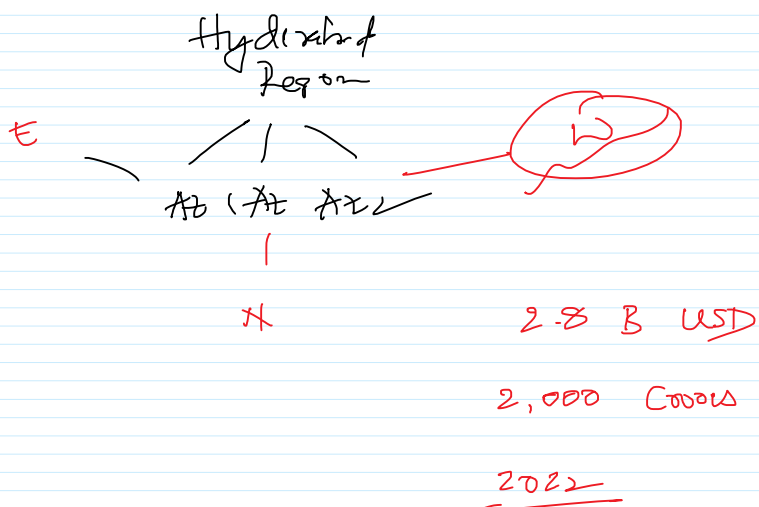 Hyderabad
Region
E
AZ AZ AZ
D
N
2.8 B USD
2,000 Crores
2022